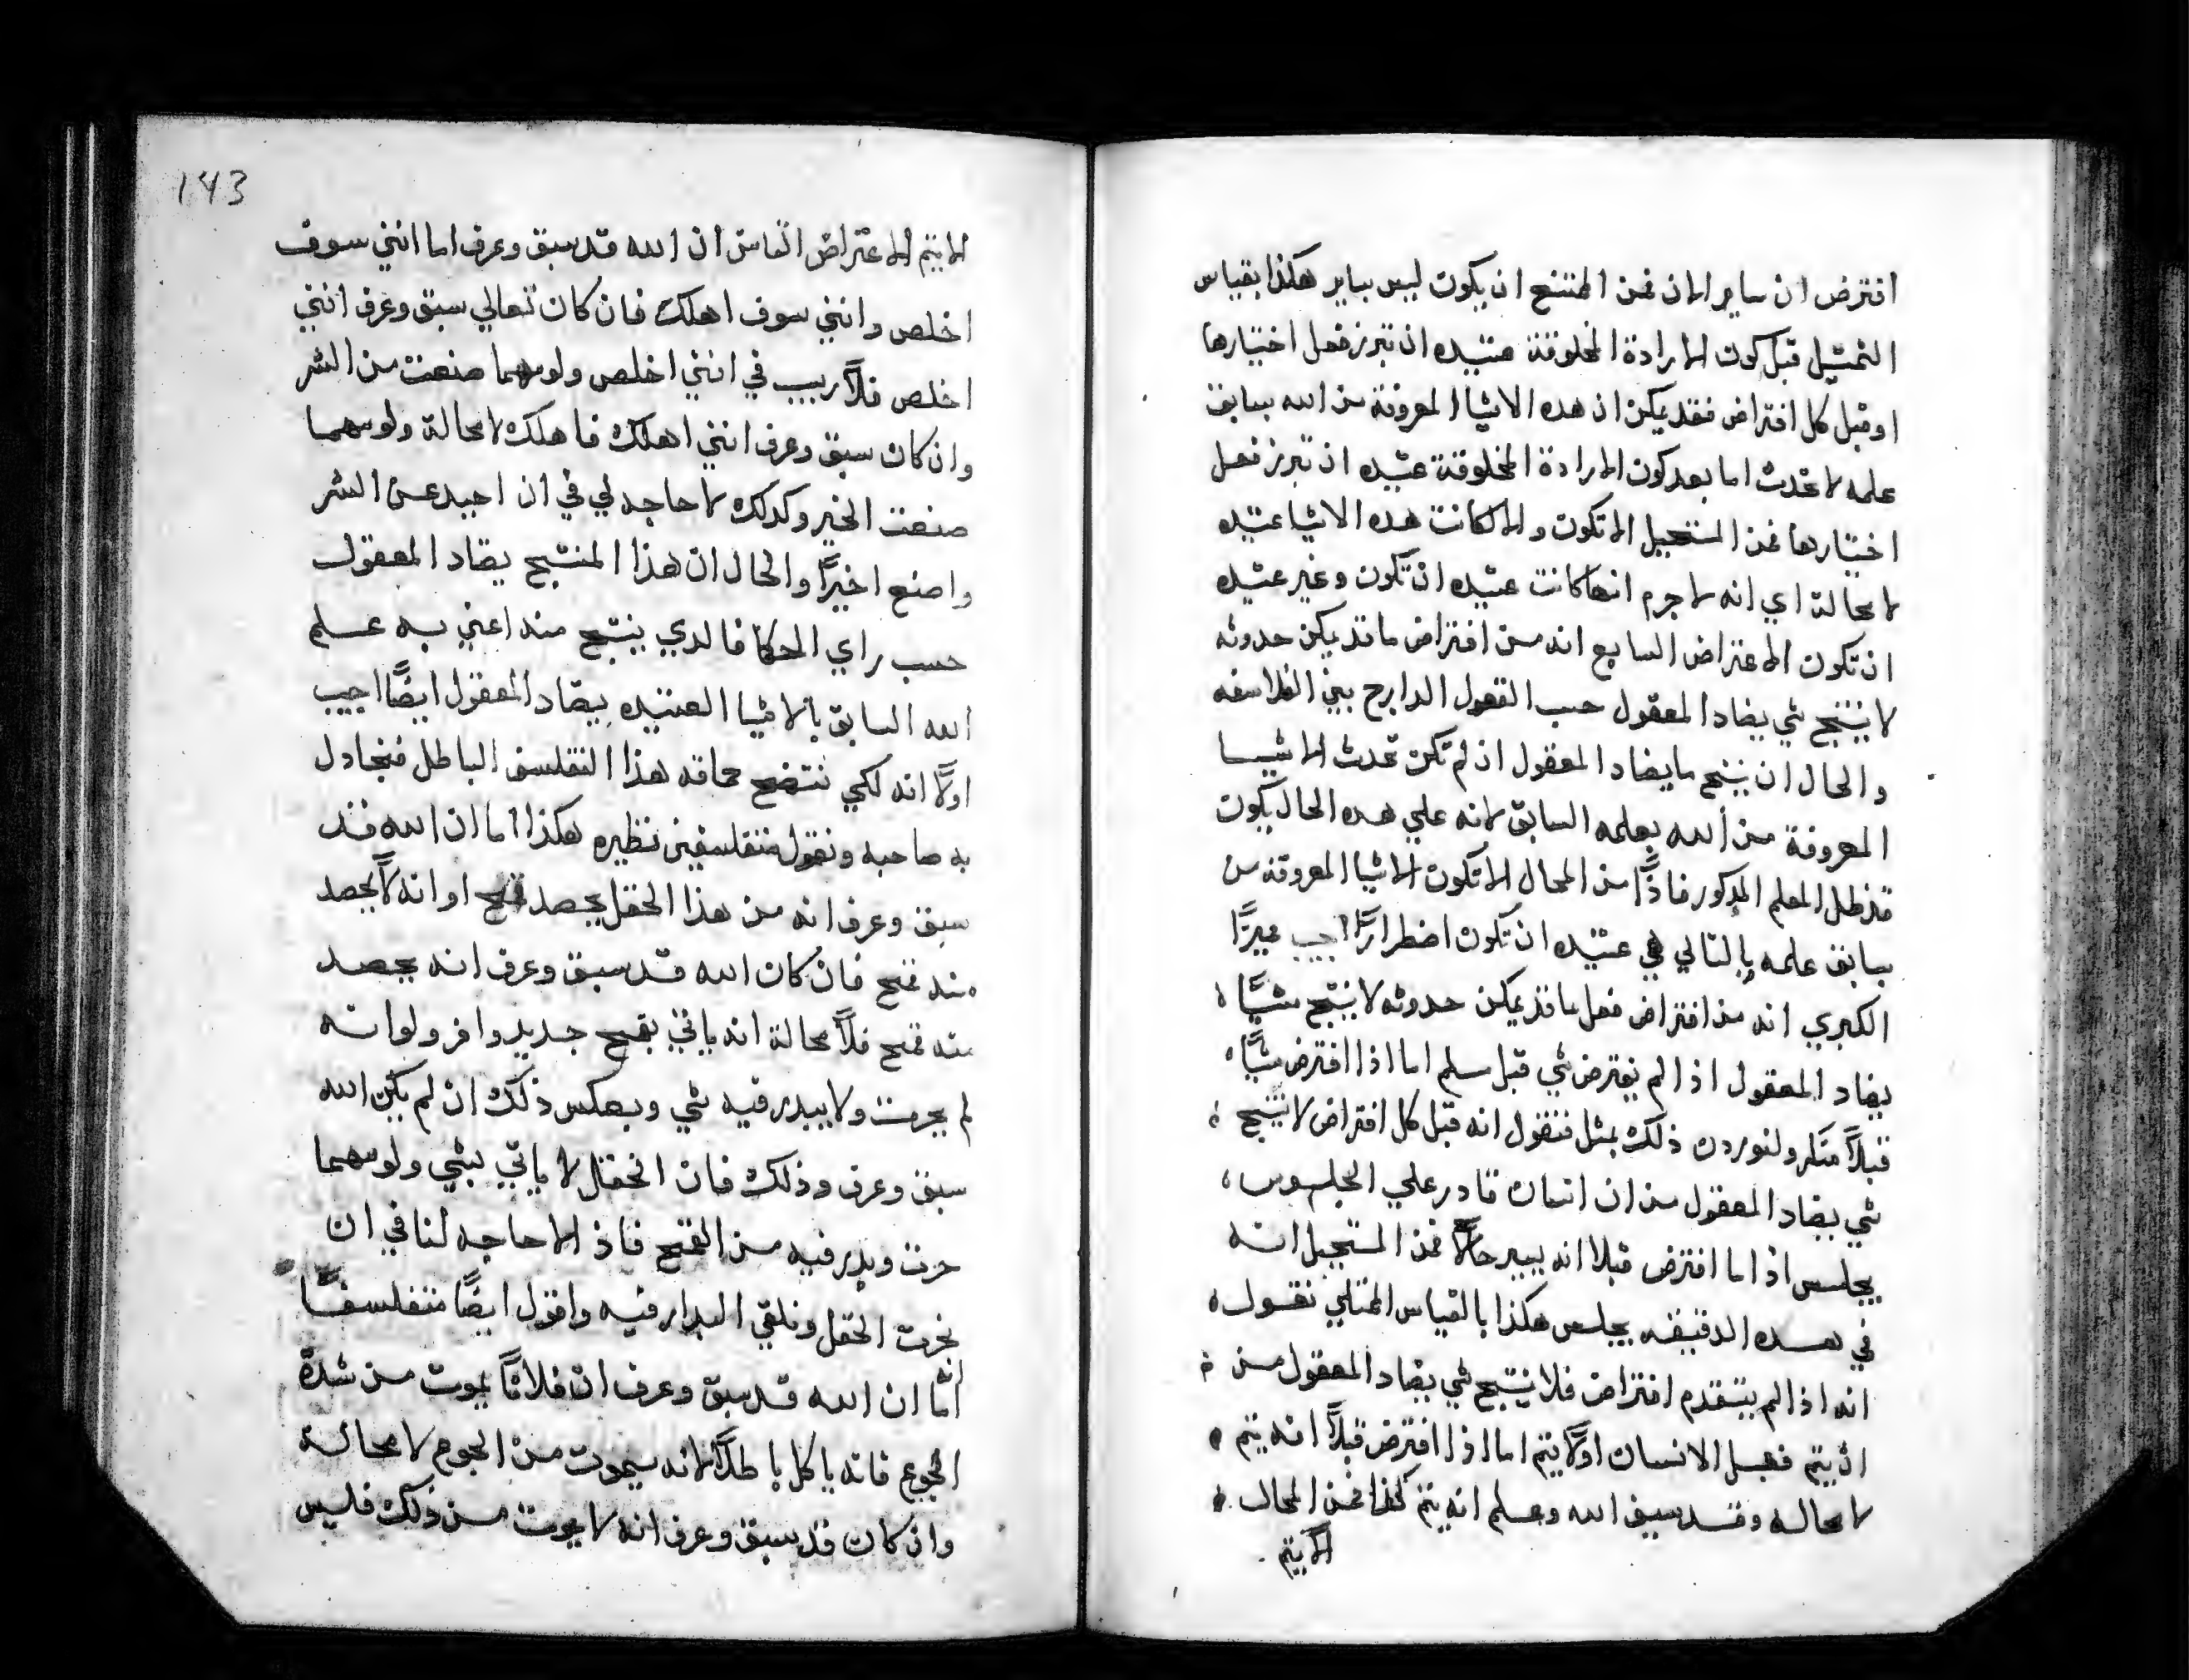 افترض ان ساير الان فمن الممتنع ان يكون ليس بساير هكذا بقياس
التمثيل قبل كون الارادة المخلوقة عتيده ان تبرز فعل اختيارها
او قبل كل افتراض فقد يمكن ان هده الاشيا المعروفة من الله بسابق
علمه لا تحدث اما بعد كون الارادة المخلوقة عتيده ان تبرز فعل
اختيارها فمن المستحيل الا تكون والا لكانت هده الاشيا عتيده
لا محالة اي انه لا جرم انها كانت عتيده ان تكون وغير عتيده
ان تكون الاعتراض السابع انه من افتراض ما قد يمكن حدوثه
لا ينتج شي يضاد المعقول حسب القول الدارج بين الفلاسفه
والحال ان ينتج ما يضاد المعقول ان لم تكن تحدث الاشيا
المعروفة من الله بعلمه السابق لانه علي هده الحال يكون
قد ظل العلم المدكور فاذًا من المحال الا تكون الاشيا المعروفة من
سابق علمه بالتالي هي عتيده ان تكون اضطرارًا اجيب مميزًا
الكبري انه من افتراض فعل ما قد يمكن حدوثه لا ينتج شيًا
يضاد المعقول اذا لم يفترض شي قبل سلم اما اذا افترض شيًا
قبلاً منكر ولنوردن ذلك بمثل فنقول انه قبل كل افتراض لا ينتج
شي يضاد المعقول من ان انسان قادر علي الجلوس
يجلس اذا ما افترض قبلا انه يسير حالاً فمن المستحيل انه
في هده الدقيقه يجلس هكذا بالقياس المثلي نقول
انه اذا لم يتقدم افتراض فلا ينتج شي يضاد المعقول من
ان يتم فعل الانسان اولا يتم اما اذا افترض قبلاً انه يتم
لا محاله وقد سبق الله وعلم انه يتم كذا فمن المحال
الا يتم
143
الا يتم الاعتراض الثامن ان الله قد سبق وعرف اما انني سوف
اخلص وانني سوف اهلك فان كان تعالي سبق وعرف انني
اخلص فلا ريب في انني اخلص ولو مهما صنعت من الشر
وان كان سبق وعرف انني اهلك فاهلك لا محالة ولو مهما
صنعت الخير وكدلك لا حاجه لي في ان احيد عن الشر
واصنع اخيرًا والحال ان هذا المنتج يضاد المعقول
حسب راي الحكما فالدي ينتج منه اعني به علم
الله السابق بالاشيا العتيده يضاد المعقول ايضًا اجيب
اولاً انه لكي نتضح حماقه هذا التفلسف الباطل فنجادل
به صاحبه ونقول متفلسفين نظيره هكذا اما ان الله قد
سبق وعرف انه من هذا الحقل يحصد قمح او انه لا يحصد
منه قمح فان كان الله قد سبق وعرف انه يحصد
منه قمح فلا محالة انه ياتي بقمح جديد وافر ولو انه
لم يحرث ولا يبدر فيه شي وبعكس ذلك ان لم يكن الله
سبق وعرف وذلك فان الحقل لا ياتي بشي ولو مهما
حرث وبدر فيه من القمح فاذ الا حاجه لنا في ان
نحرث الحقل ونلقي البدار فيه واقول ايضًا متفلسفًا
اما ان الله قد سبق وعرف ان فلانًا يموت من شدة
الجوع فانه ياكل باطلاً لانه سيموت من الجوع لا محالة
وان كان قد سبق وعرف انه لا يموت من ذلك فليس